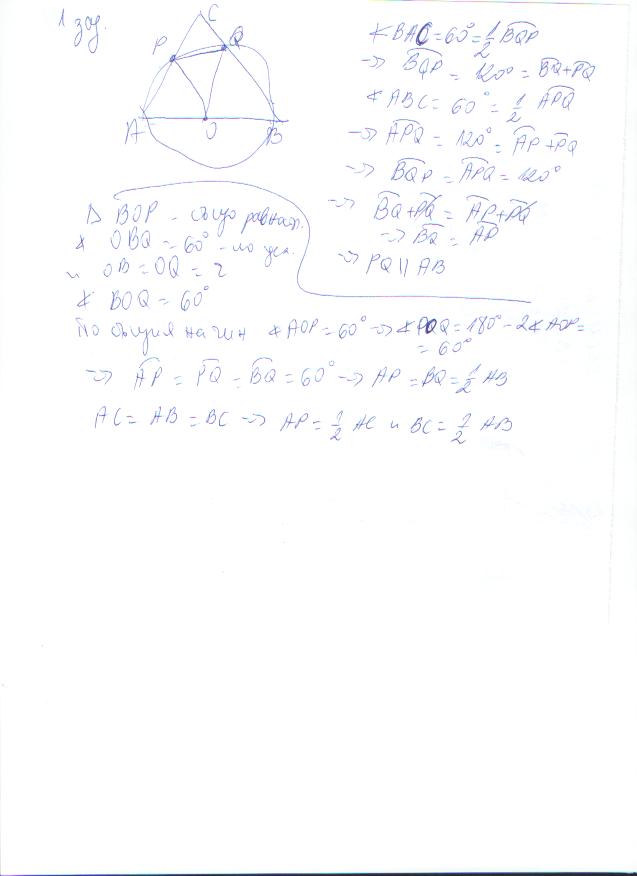 1 зад.
C
P
Q
A
O
B
∢BAC = 60° = 1/2 BQP
→ BQP = 120° = BQ + PQ
∢ABC = 60° = 1/2 APQ
→ APQ = 120° = AP + PQ
→ BQP = APQ = 120°
→ BQ + PQ = AP + PQ
→ BQ = AP
→ PQ || AB
Δ BOP - също
∢ OBQ = 60° - по усл.
и OB = OQ = r
∢ BOQ = 60°
По същия начин ∢AOP = 60° → ∢POQ = 180° - 2∢AOP =
= 60°
→ AP = PQ = BQ = 60° → AP = BQ = 1/2 AB
AC = AB = BC → AP = 1/2 AC и BC = 1/2 AB